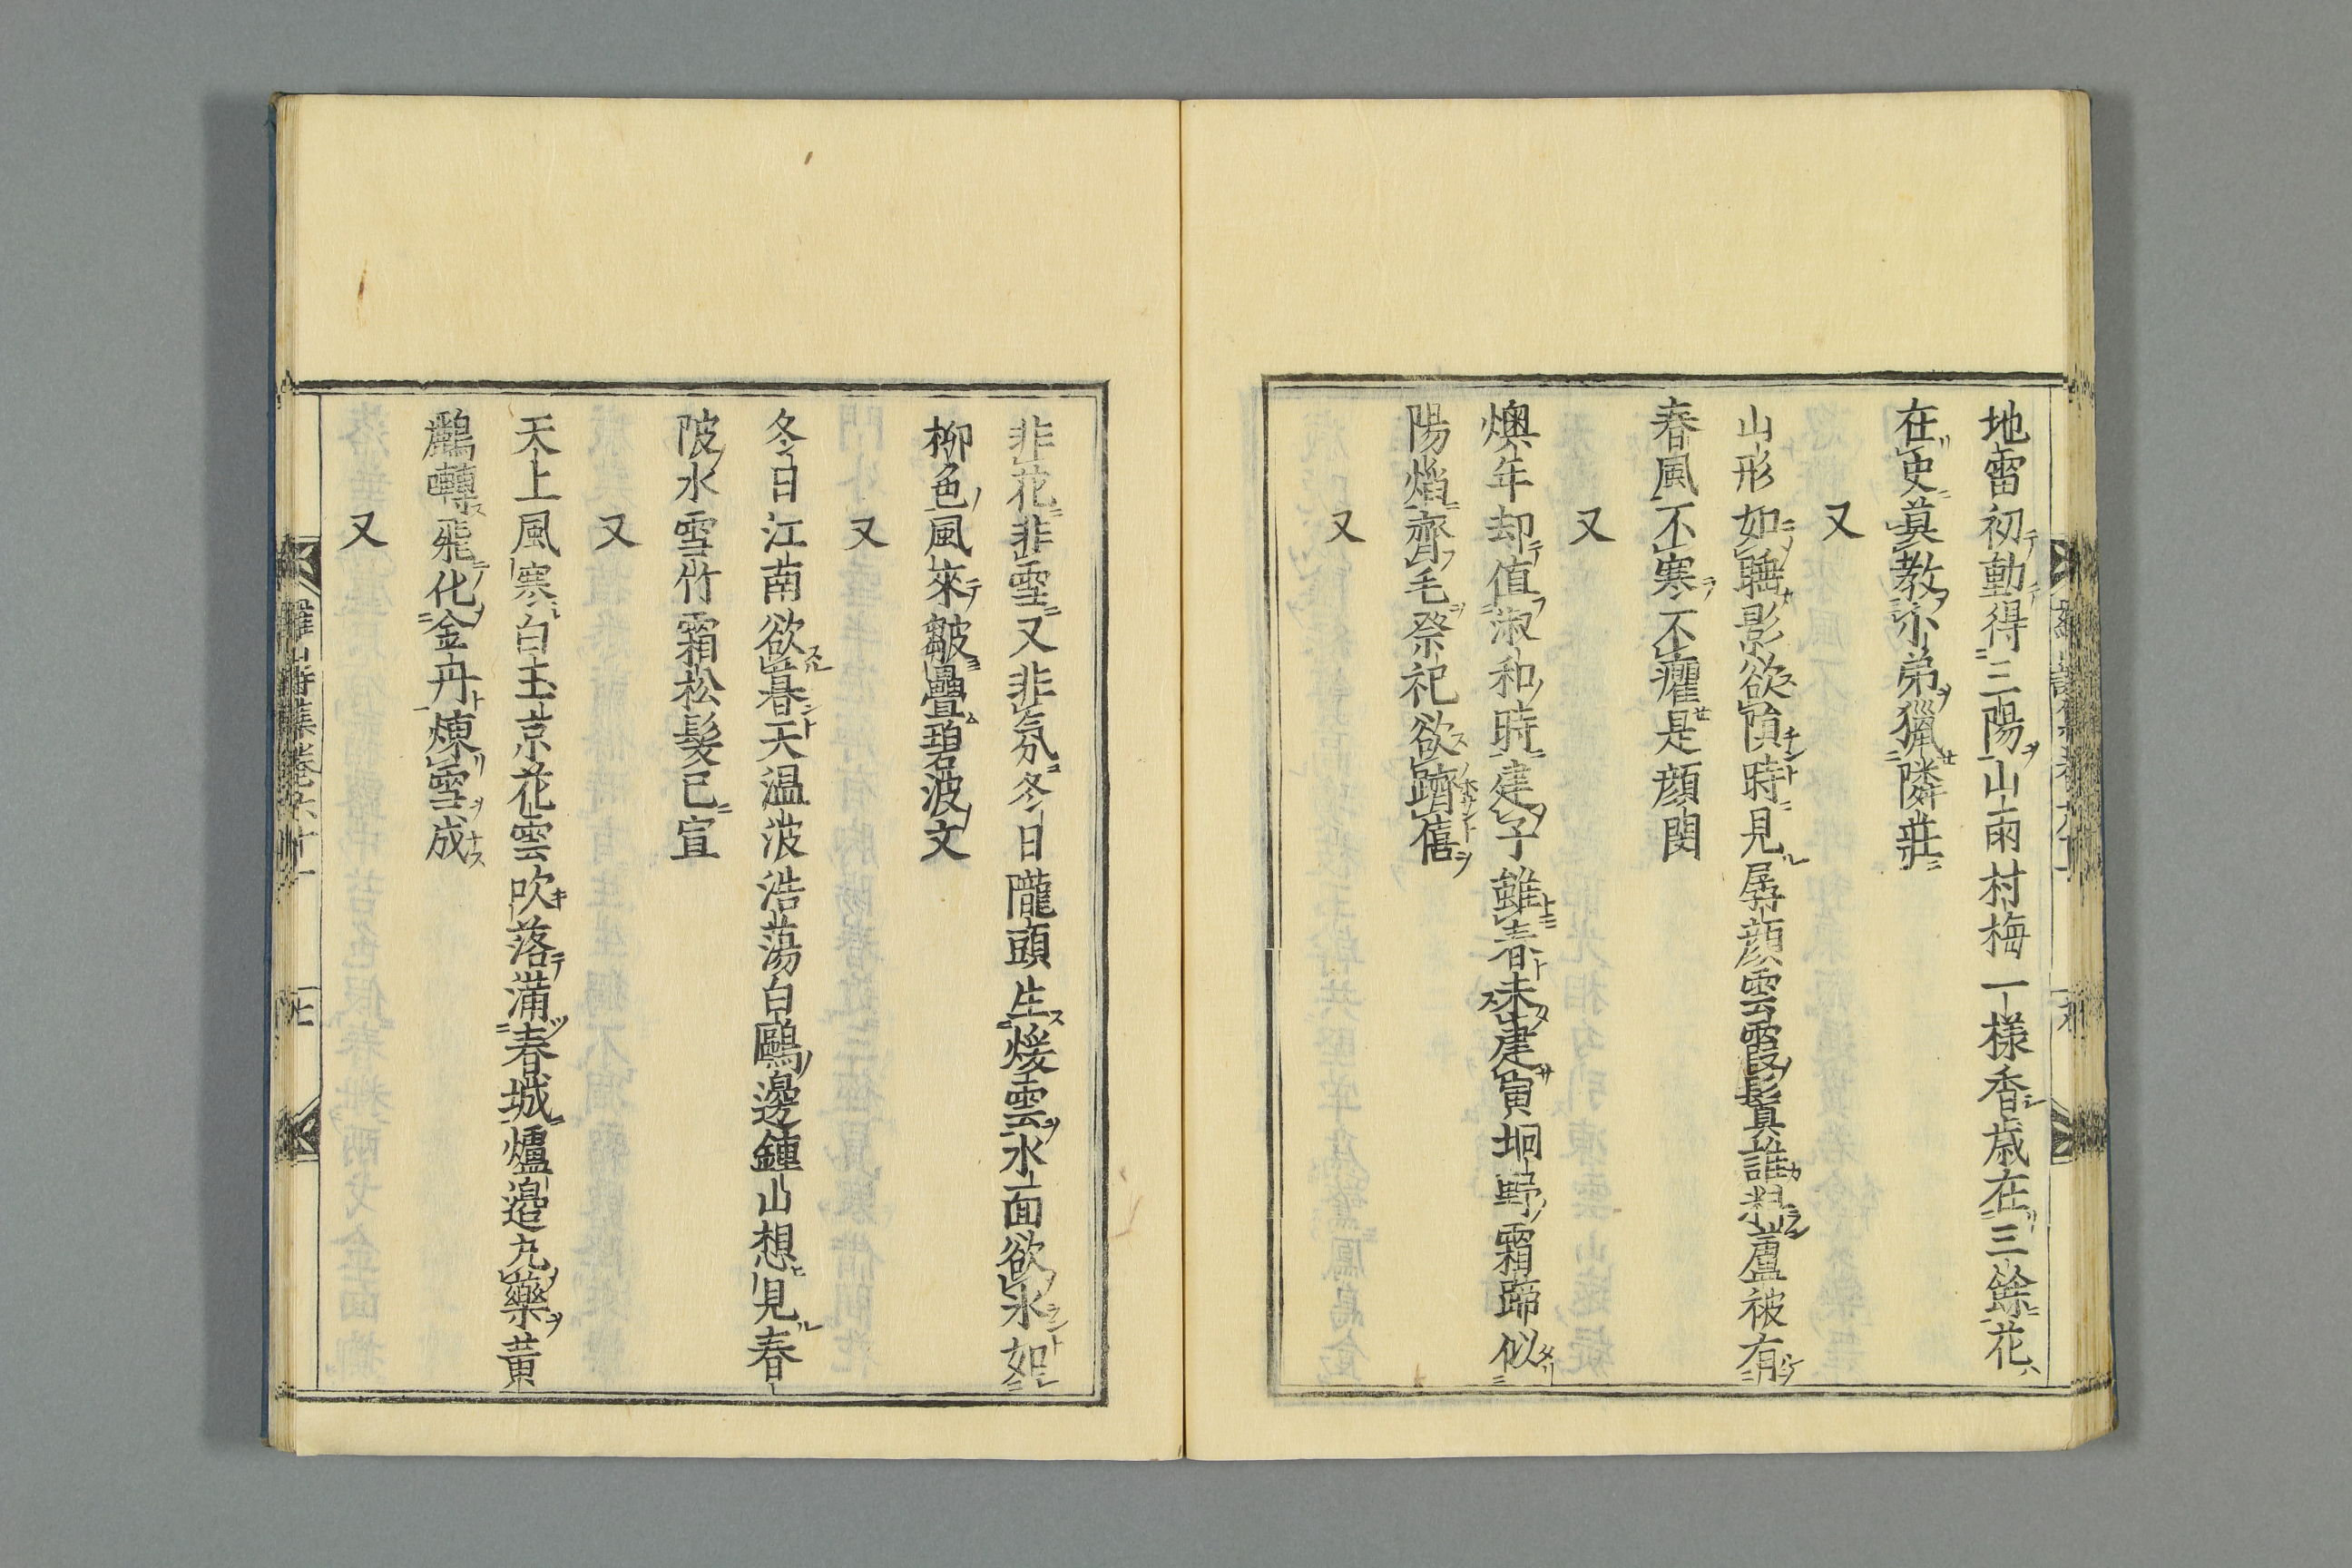 地雷初動得三陽山雨村梅一様香歳在三餘花
在史莫教糸弟獵隣莊
又
山形如聃影欲隕時見孱顔雲霞鬢真誰料蘆被有
春風不寒不癯是顔閔
又
燠年却值淑和時建子雖春未建寅坰野霜蹄似
陽焔齊毛祭祀欲躋僖
又
非花非雪又非氛冬日隴頭生煖雲水面欲氷如
柳色風來皺疊碧波文
又
冬日江南欲暮天温波浩蕩白鷗邊鍾山想見春
陂水雪竹霜松髮已宣
又
天上風寒白玉京花雲吹落滿春城爐邉丸藥黄
鸝轉飛化金丹煉雪成
又
羅山詩集卷六十一